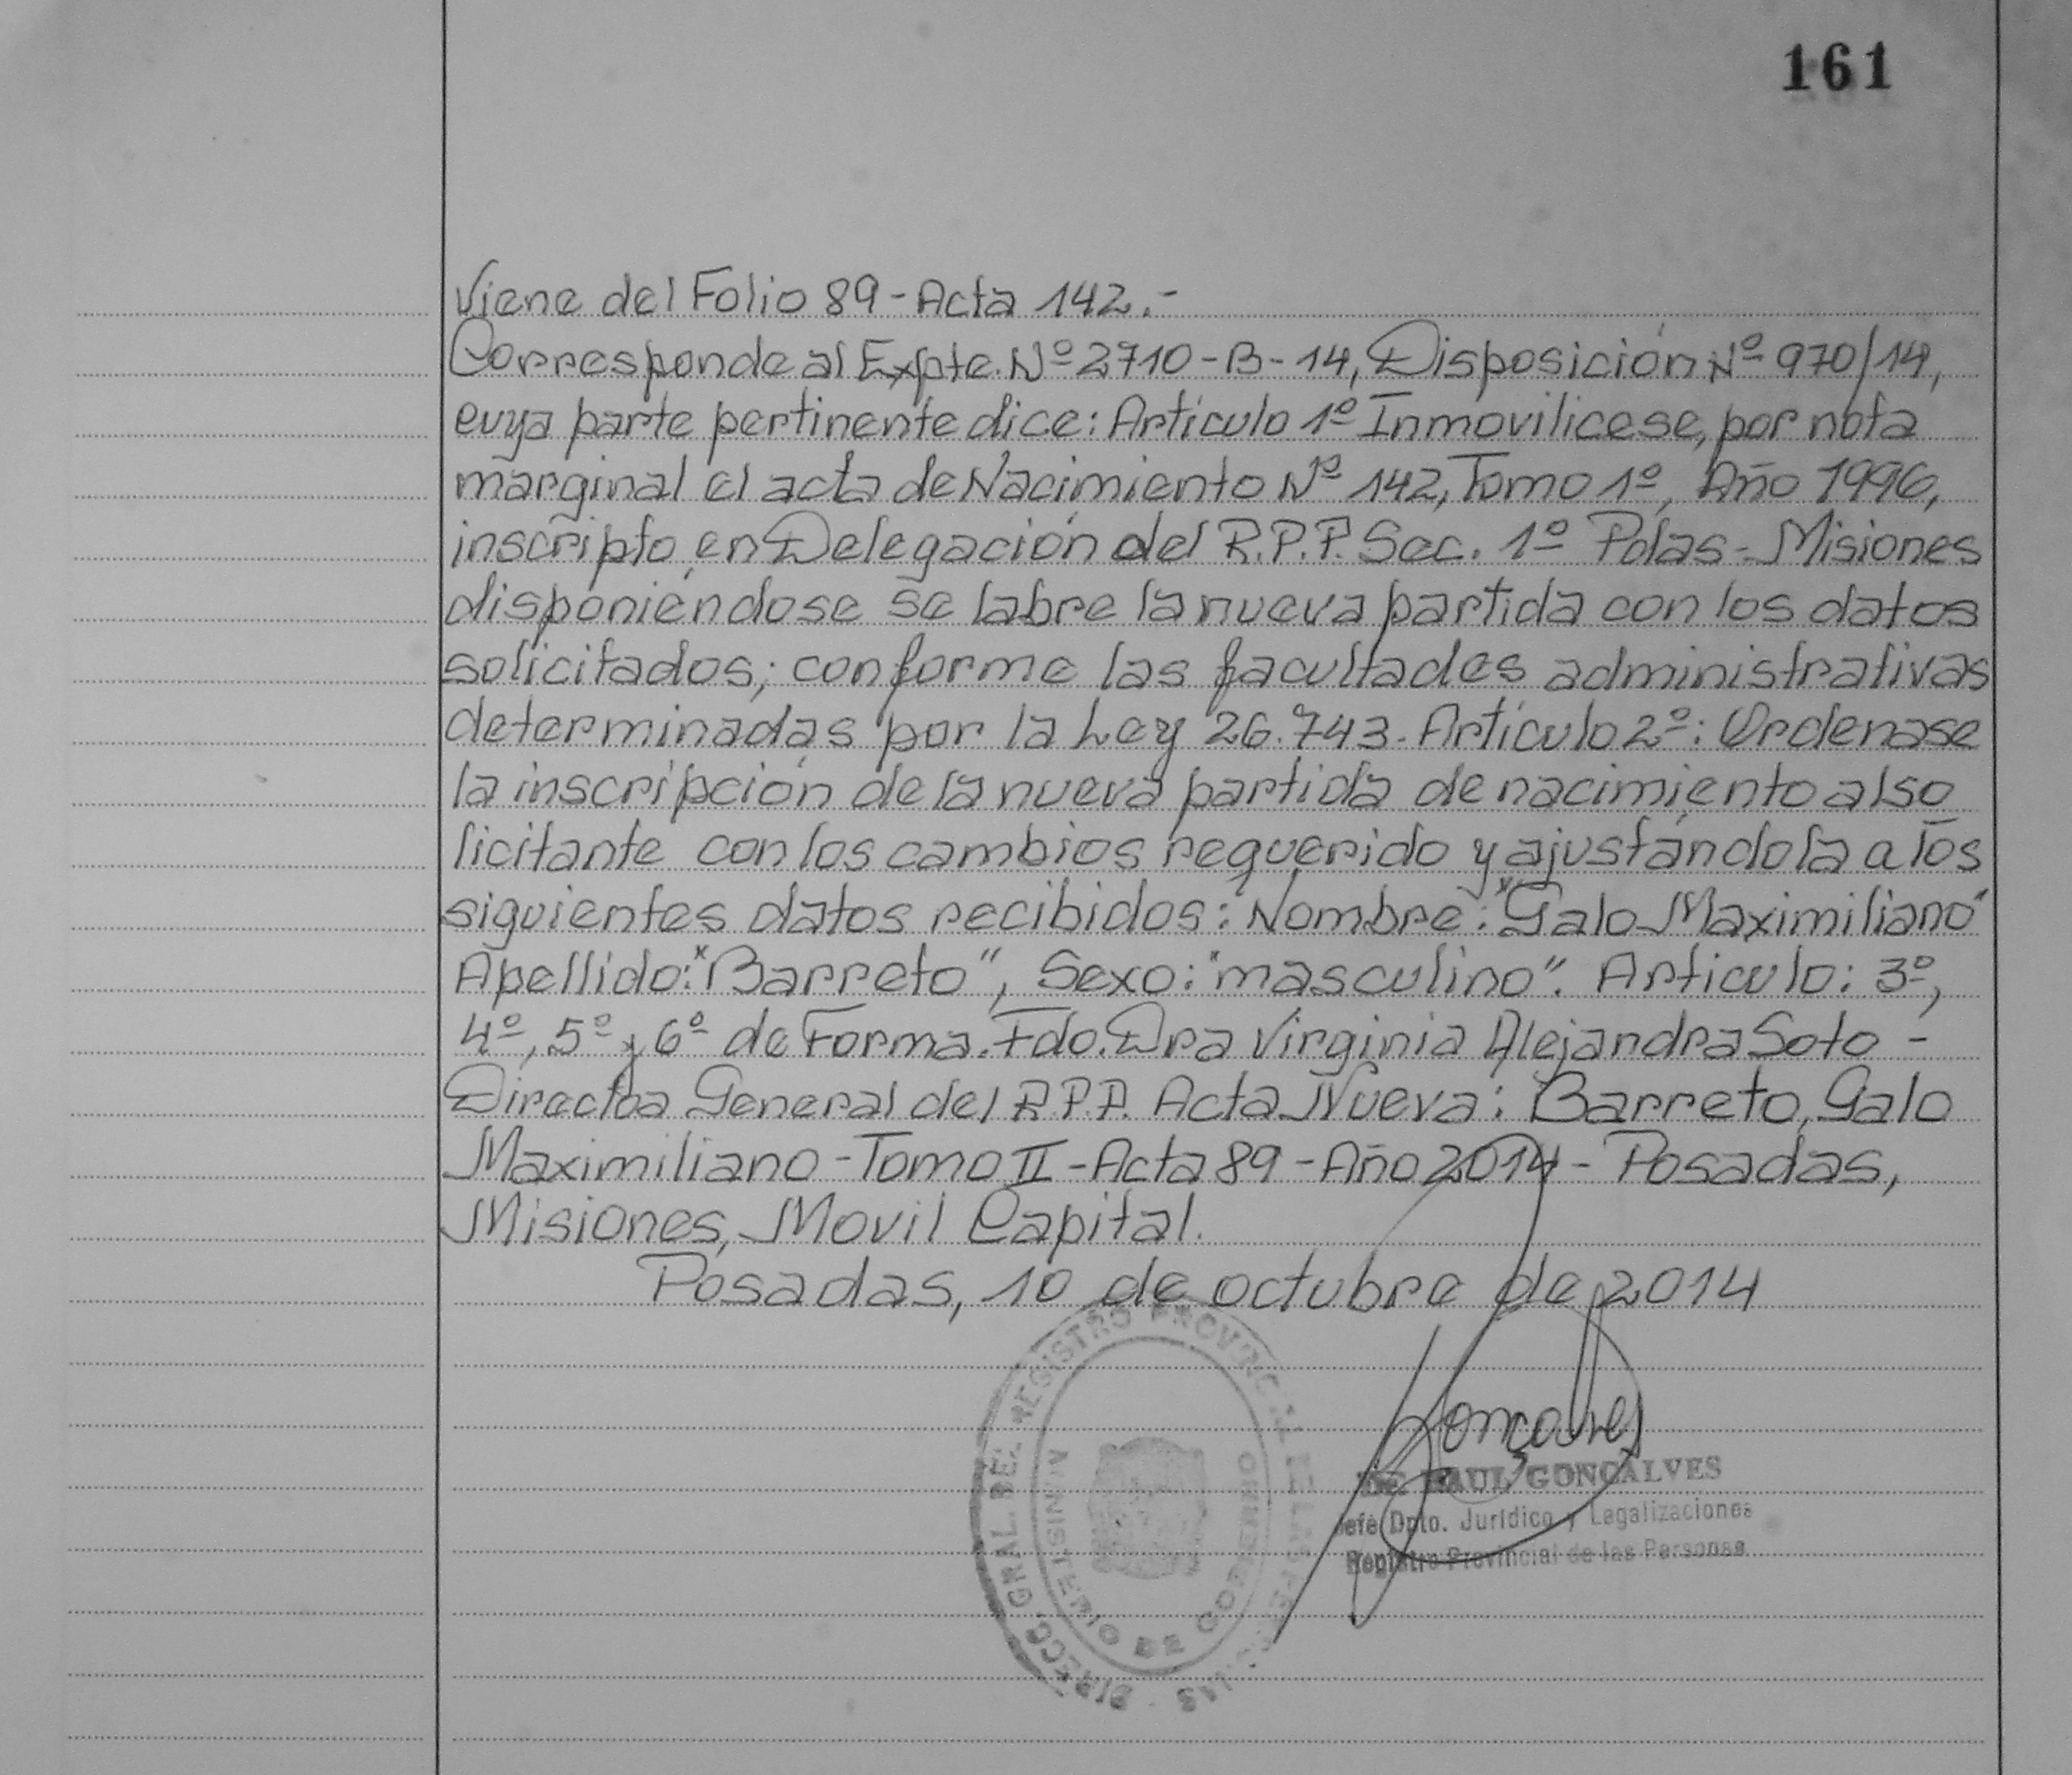 161
Viene del Folio 89 - Acta 142.-
Corresponde al Expte. Nº 2710-B-14, Disposición Nº 970/14,
cuya parte pertinente dice: Artículo 1º Inmovilicese, por nota
marginal el acta de Nacimiento Nº 142, Tomo 1º, Año 1996,
inscripto, en Delegación del R.P.P. Sec. 1º Pdas - Misiones
disponiéndose se labre la nueva partida con los datos
solicitados; conforme las facultades administrativas
determinadas por la Ley 26.743. Artículo 2º: Ordenase
la inscripción de la nueva partida de nacimiento al so
licitante con los cambios requerido y ajustándola a los
siguientes datos recibidos: Nombre: "Galo Maximiliano"
Apellido: "Barreto", Sexo: "masculino". Articulo: 3º,
4º, 5º y 6º de Forma. Fdo. Dra Virginia Alejandra Soto -
Directoa General del R.P.P. Acta Nueva: Barreto, Galo
Maximiliano - Tomo II - Acta 89 - Año 2014 - Posadas,
Misiones, Movil Capital.
Posadas, 10 de octubre de 2014
DIRECC. GRAL. DEL REGISTRO PROVINCIAL DE LAS PERSONAS
MINISTERIO DE GOBIERNO
Gonçalves
RAUL GONÇALVES
Jefe Dpto. Jurídico y Legalizaciones
Registro Provincial de las Personas